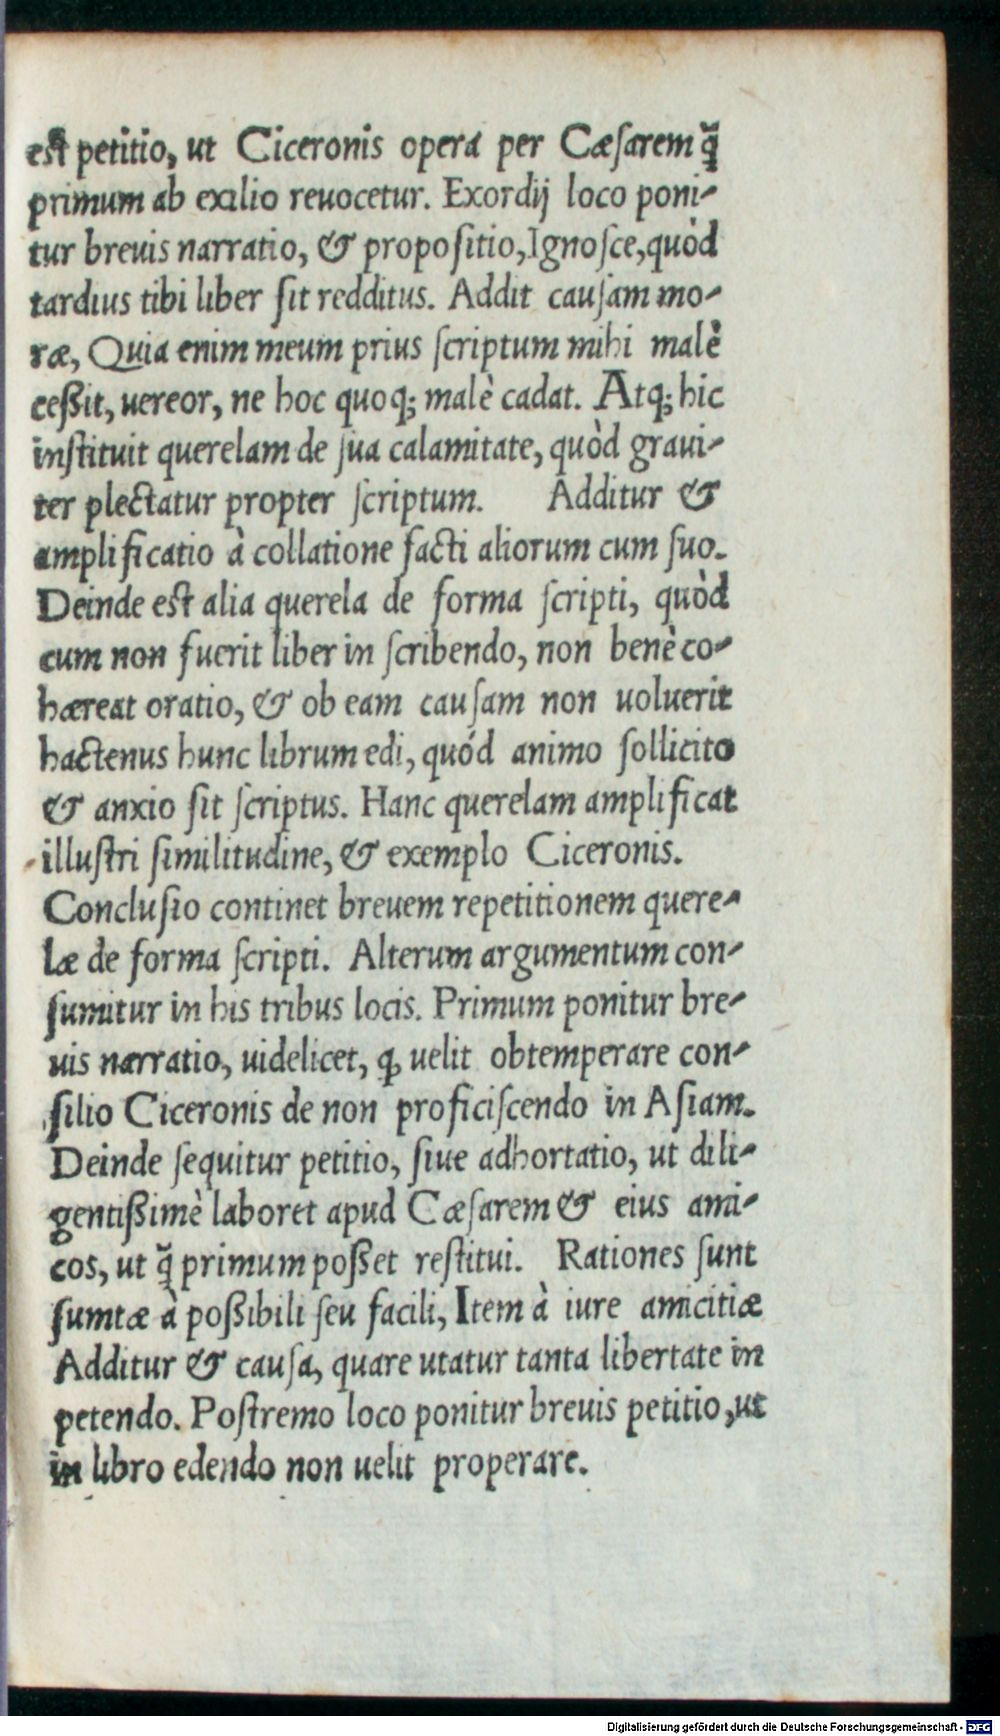 est petitio, ut Ciceronis opera per Cæſarem q̃
primum ab exilio reuocetur. Exordij loco poni-
tur breuis narratio, & propoſitio, Ignoſce, quòd
tardius tibi liber ſit redditus. Addit cauſam mo-
ræ, Quia enim meum prius ſcriptum mihi malè
ceßit, uereor, ne hoc quoq; malè cadat. Atq; hic
inſtituit querelam de ſua calamitate, quòd graui-
ter plectatur propter ſcriptum. Additur &
amplificatio à collatione facti aliorum cum ſuo.
Deinde eſt alia querela de forma ſcripti, quòd
cum non fuerit liber in ſcribendo, non benè co-
hæreat oratio, & ob eam cauſam non uoluerit
hactenus hunc librum edi, quód animo ſollicito
& anxio ſit ſcriptus. Hanc querelam amplificat
illuſtri ſimilitudine, & exemplo Ciceronis.
Concluſio continet breuem repetitionem quere-
læ de forma ſcripti. Alterum argumentum con-
ſumitur in his tribus locis. Primum ponitur bre-
uis narratio, uidelicet, ꝙ uelit obtemperare con-
ſilio Ciceronis de non proficiſcendo in Aſiam.
Deinde ſequitur petitio, ſiue adhortatio, ut dili-
gentißimè laboret apud Cæſarem & eius ami-
cos, ut q̃ primum poßet reſtitui. Rationes ſunt
ſumtæ à poßibili ſeu facili, Item à iure amicitiæ
Additur & cauſa, quare utatur tanta libertate in
petendo. Poſtremo loco ponitur breuis petitio, ut
in libro edendo non uelit properare.
Digitalisierung gefördert durch die Deutsche Forschungsgemeinschaft - DFG